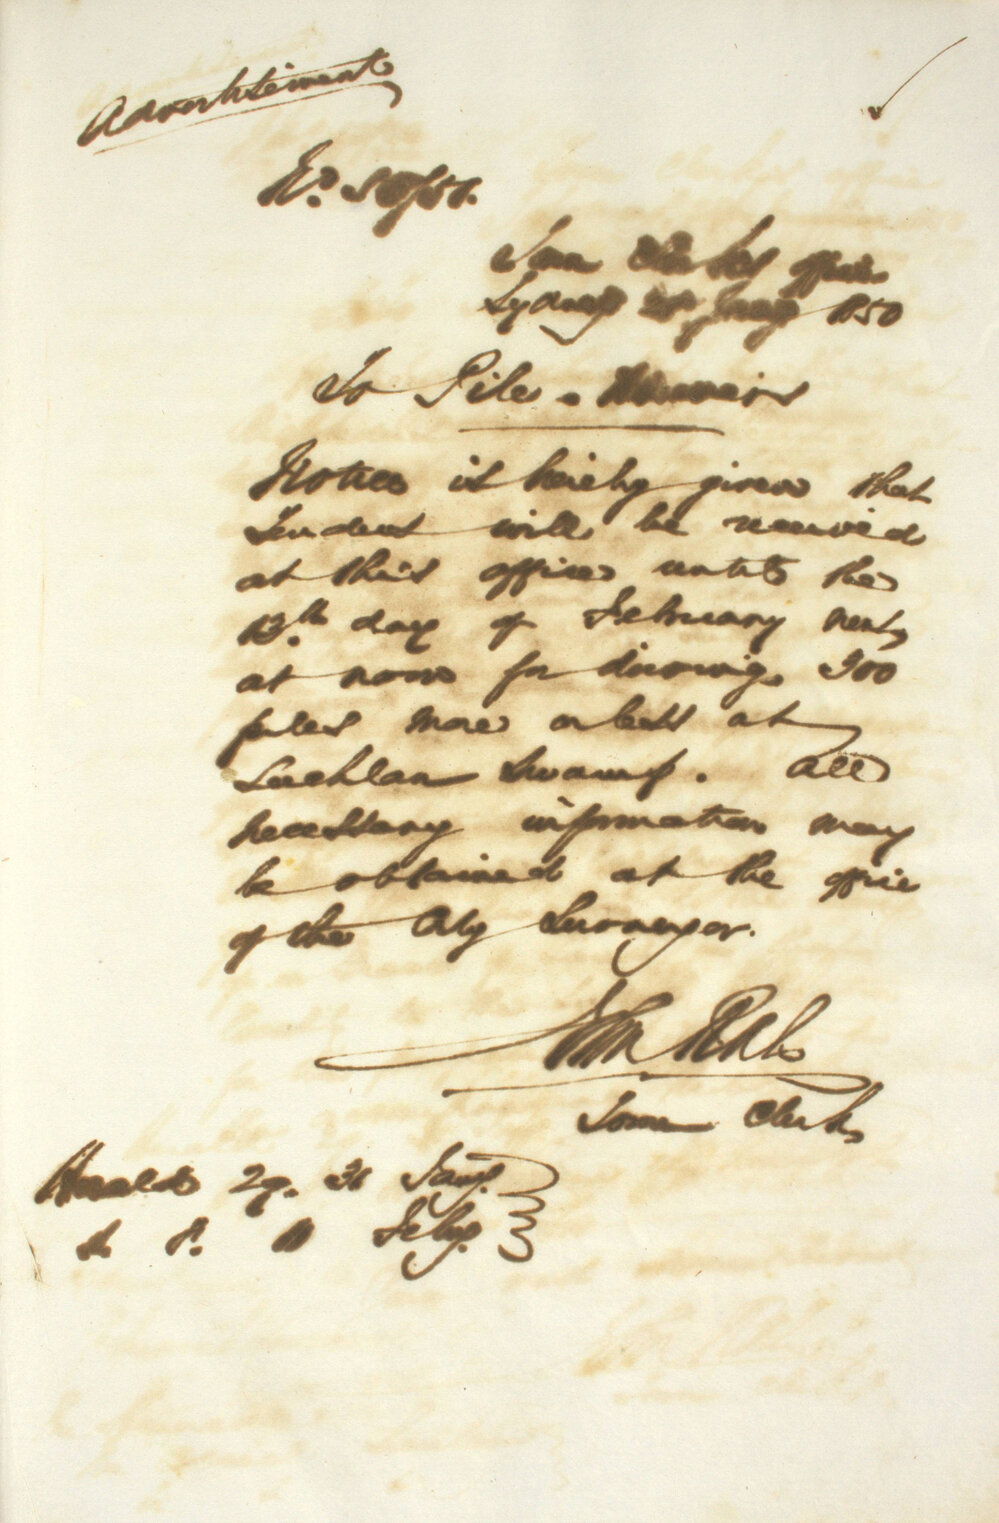 Advertisement
No. 50/51.
Town Clerks office
Sydney 28 Jany 1850
To Pile - Drivers
Notice is hereby given that
Tenders will be received
at this office until the
13.th day of February next,
at noon for driving 300
piles more or less at
Lachlan Swamp. All
necessary information may
be obtained at the office
of the City Surveyor.
John Rae
Town Clerk
Herald 29. 31 Jany.
Feby.